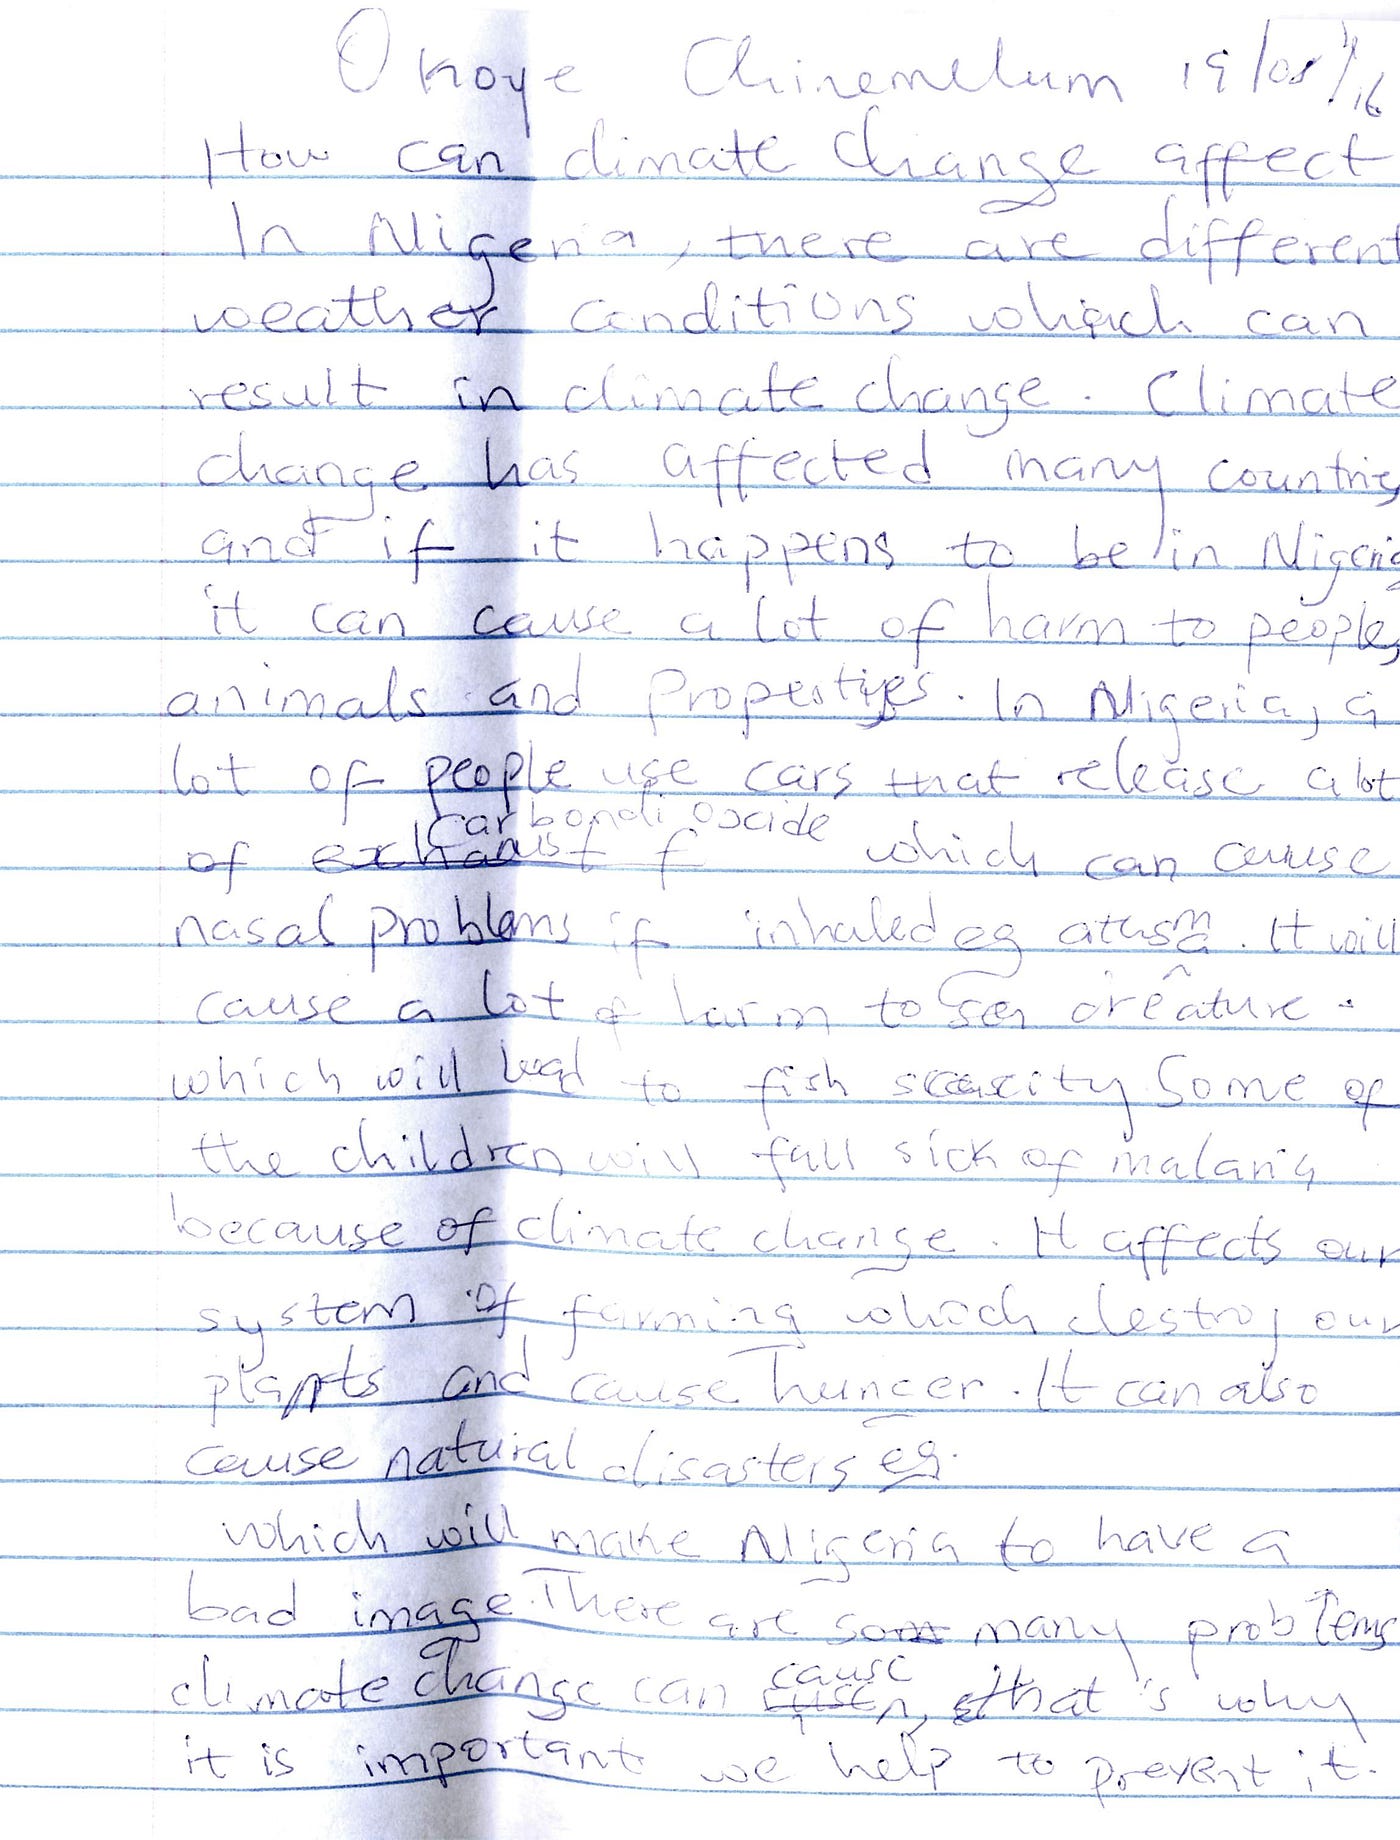 Okoye Chinemelum 19/08/16
How can climate change affect
In Nigeria, there are different
weather conditions which can
result in climate change. Climate
change has affected many countries
and if it happens to be in Nigeria
it can cause a lot of harm to people,
animals and Properties. In Nigeria, a
lot of people use cars that release a lot
carbondi oxcide
of exhaust f which can cause
nasal problems if inhaled eg atusma. It will
cause a lot of harm to sea creature.
which will lead to fish scarcity Some of
the children will fall sick of malaria
because of climate change. It affects our
system of farming which destroy our
plants and cause hunger. It can also
cause natural disasters eg.
which will make Nigeria to have a
bad image. There are som many problems
cause
climate change can that's why
it is important we help to prevent it.